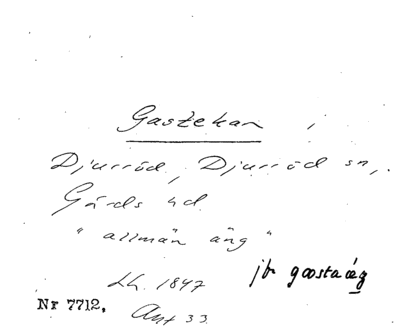 Gastekan i
Djurröd, Djurröd sn,
Gärds hd
"allmän äng"
Lh. 1847
jfr gastaäg
Nr 7712, Akt 33